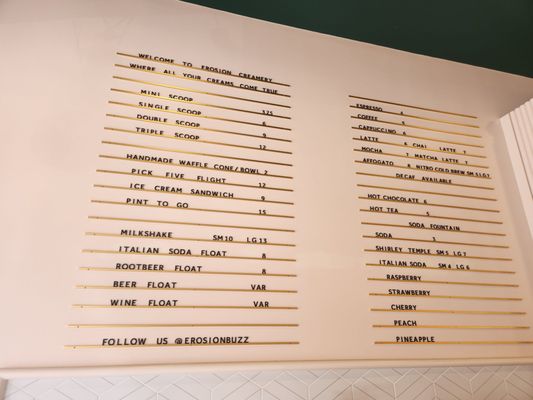 WELCOME TO EROSION CREAMERY
WHERE ALL YOUR CREAMS COME TRUE
MINI SCOOP 3.75
SINGLE SCOOP 6
DOUBLE SCOOP 9
TRIPLE SCOOP 12
HANDMADE WAFFLE CONE/BOWL 2
PICK FIVE FLIGHT 12
ICE CREAM SANDWICH 9
PINT TO GO 15
MILKSHAKE SM 10 LG 13
ITALIAN SODA FLOAT 8
ROOTBEER FLOAT 8
BEER FLOAT VAR
WINE FLOAT VAR
FOLLOW US @EROSIONBUZZ
ESPRESSO 4
COFFEE
CAPPUCCINO 6
LATTE 6 CHAI LATTE 7
MOCHA 7 MATCHA LATTE 7
AFFOGATO 8 NITRO COLD BREW SM 5 LG 7
DECAF AVAILABLE
HOT CHOCOLATE 6
HOT TEA 5
SODA FOUNTAIN
SODA 3
SHIRLEY TEMPLE SM 5 LG 7
ITALIAN SODA SM 4 LG 6
RASPBERRY
STRAWBERRY
CHERRY
PEACH
PINEAPPLE